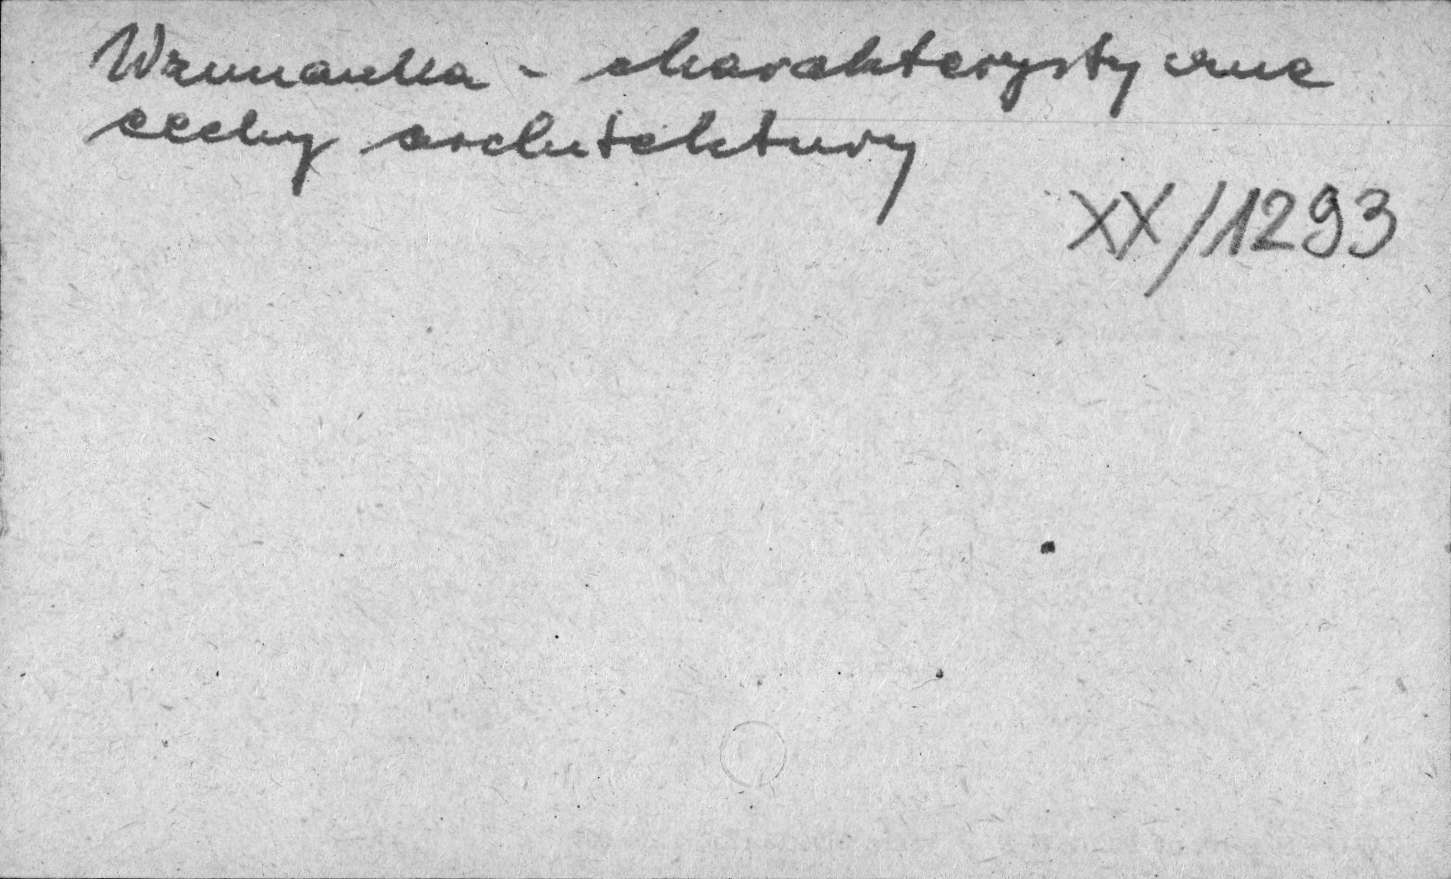 Wzmianka - charakterystyczne
cechy architektury
XX/1293